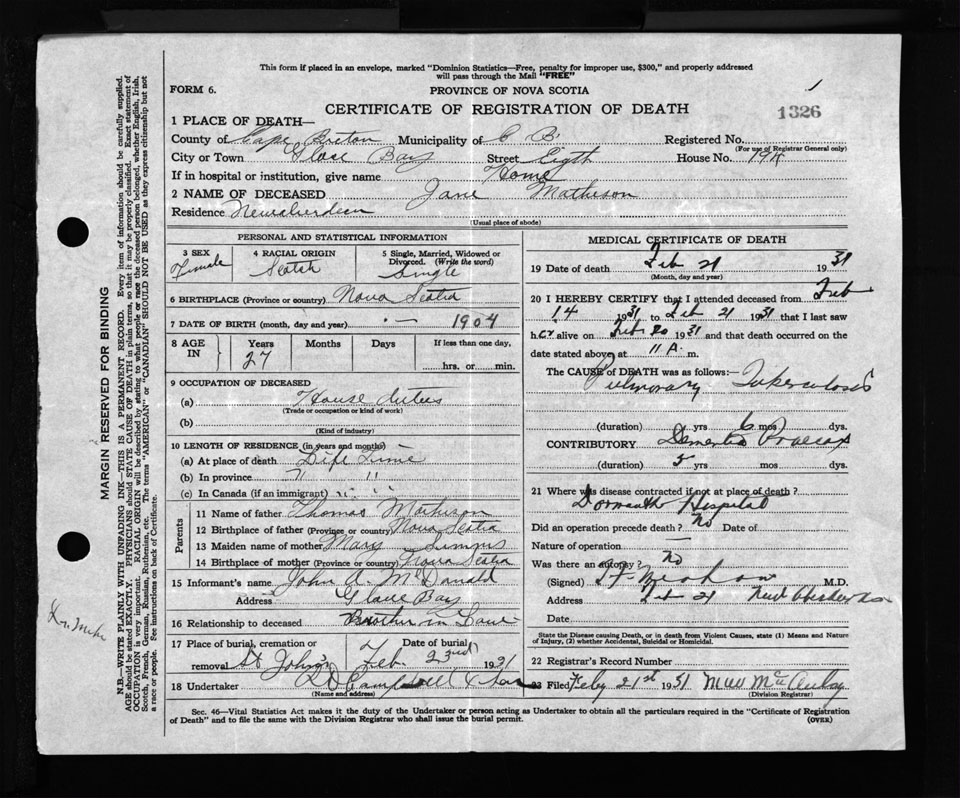 This form if placed in an envelope, marked "Dominion Statistics—Free, penalty for improper use, $300," and properly addressed
will pass through the Mail "FREE"
FORM 6.
PROVINCE OF NOVA SCOTIA
CERTIFICATE OF REGISTRATION OF DEATH
1326
1 PLACE OF DEATH—
County of Cape Breton Municipality of C B. Registered No.
(For use of Registrar General only)
City or Town Glace Bay Street Eigth House No. 19
If in hospital or institution, give name Home
2 NAME OF DECEASED Jane Matheson
Residence Newaberdeen
(Usual place of abode)
PERSONAL AND STATISTICAL INFORMATION
3 SEX
Female
4 RACIAL ORIGIN
Scotch
5 Single, Married, Widowed or
Divorced. (Write the word)
Single
6 BIRTHPLACE (Province or country) Nova Scotia
7 DATE OF BIRTH (month, day and year) — 1904
8 AGE
IN
Years
27
Months
Days
If less than one day,
hrs. or min.
9 OCCUPATION OF DECEASED
(a) House duties
(Trade or occupation or kind of work)
(b)
(Kind of industry)
10 LENGTH OF RESIDENCE (in years and months)
(a) At place of death Life Time
(b) In province " "
(c) In Canada (if an immigrant)
Parents
11 Name of father Thomas Matheson
12 Birthplace of father (Province or country) Nova Scotia
13 Maiden name of mother Mary
14 Birthplace of mother (Province or country) Nova Scotia
15 Informant's name John A. McDonald
Address Glace Bay
16 Relationship to deceased Brother in Law
17 Place of burial, cremation or
removal St John's
Date of burial
Feb 23rd 1931
18 Undertaker Campbell
(Name and address)
MEDICAL CERTIFICATE OF DEATH
19 Date of death Feb 21 1931
(Month, day and year)
20 I HEREBY CERTIFY that I attended deceased from Feb
14 1931 to Feb 21 1931 that I last saw
her alive on Feb 20 1931 and that death occurred on the
date stated above at 11 A. m.
The CAUSE of DEATH was as follows:—
Pulmonary Tuberculosis
(duration) yrs 6 mos dys.
CONTRIBUTORY Dementia Praecox
(duration) 5 yrs mos dys.
21 Where was disease contracted if not at place of death?
Hospital
Did an operation precede death? No Date of
Nature of operation —
Was there an autopsy? No
(Signed) M.D.
Address Feb 21 New Aberdeen
Date
State the Disease causing Death, or in death from Violent Causes, state (1) Means and Nature
of Injury, (2) whether Accidental, Suicidal or Homicidal.
22 Registrar's Record Number
23 Filed Feby 21st 1931
(Division Registrar)
Sec. 46—Vital Statistics Act makes it the duty of the Undertaker or person acting as Undertaker to obtain all the particulars required in the "Certificate of Registration
of Death" and to file the same with the Division Registrar who shall issue the burial permit.
(OVER)
MARGIN RESERVED FOR BINDING
N.B.—WRITE PLAINLY WITH UNFADING INK—THIS IS A PERMANENT RECORD. Every item of information should be carefully supplied.
AGE should be stated EXACTLY. PHYSICIANS should STATE CAUSE OF DEATH in plain terms, so that it may be properly classified. Exact statement of
OCCUPATION is very important. RACIAL ORIGIN will be described by stating to what people or race the deceased person belonged, whether English, Irish,
Scotch, French, German, Russian, Ruthenian, etc. The terms "AMERICAN" or "CANADIAN" SHOULD NOT BE USED as they express citizenship but not
a race or people. See instructions on back of Certificate.